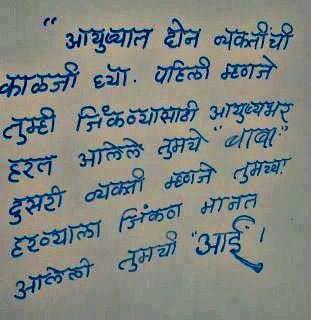 "आयुष्यात दोन व्यक्तींची
काळजी घ्या. पहिली म्हणजे
तुम्ही जिंकण्यासाठी आयुष्यभर
हरत आलेले तुमचे "बाबा."
दुसरी व्यक्ती म्हणजे तुमच्या
हरण्याला जिंकणं मानत
आलेली तुमची "आई"!